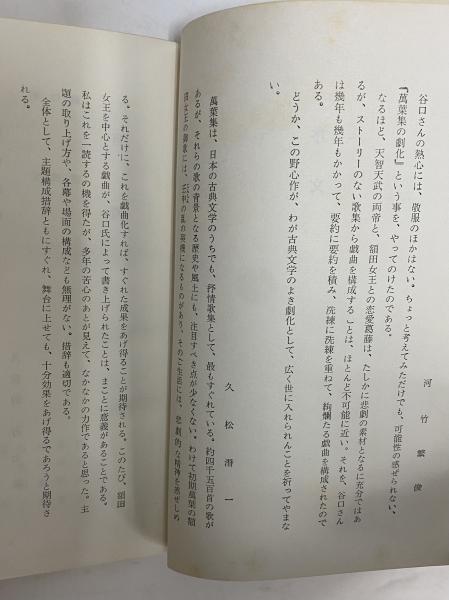 河竹繁俊
谷口さんの熱心には、敬服のほかはない。ちょっと考えてみただけでも、可能性の感ぜられない、
『萬葉集の劇化』という事を、やってのけたのである。
なるほど、天智天武の両帝と、額田女王との恋愛葛藤は、たしかに悲劇の素材となるに充分ではあ
るが、ストーリーのない歌集から戯曲を構成することは、ほとんど不可能に近い。それを、谷口さん
は幾年も幾年もかかって、要約に要約を積み、洗練に洗練を重ねて、絢爛たる戯曲を構成されたので
ある。
どうか、この野心作が、わが古典文学のよき劇化として、広く世に入れられんことを祈ってやまな
い。
久松潜一
萬葉集は、日本の古典文学のうちでも、抒情歌集として、最もすぐれている。約四千五百首の歌が
あるが、それらの歌の背景となる歴史や風土にも、注目すべき点が少なくない。わけて初期萬葉の額
田女王の御歌には、壬申の乱の契機になるものがあり、そのご生活には、悲劇的な精神を感ぜしめ
る。それだけに、これを戯曲化すれば、すぐれた成果をあげ得ることが期待される。このたび、額田
女王を中心とする戯曲が、谷口氏によって書き上げられたことは、まことに意義があることである。
私はこれを一読するの機を得たが、多年の苦心のあとが見えて、なかなかの力作であると思った。主
題の取り上げ方や、各幕や場面の構成なども無理がない。措辞も適切である。
全体として、主題構成措辞ともにすぐれ、舞台に上せても、十分効果をあげ得るであろうと期待さ
れる。